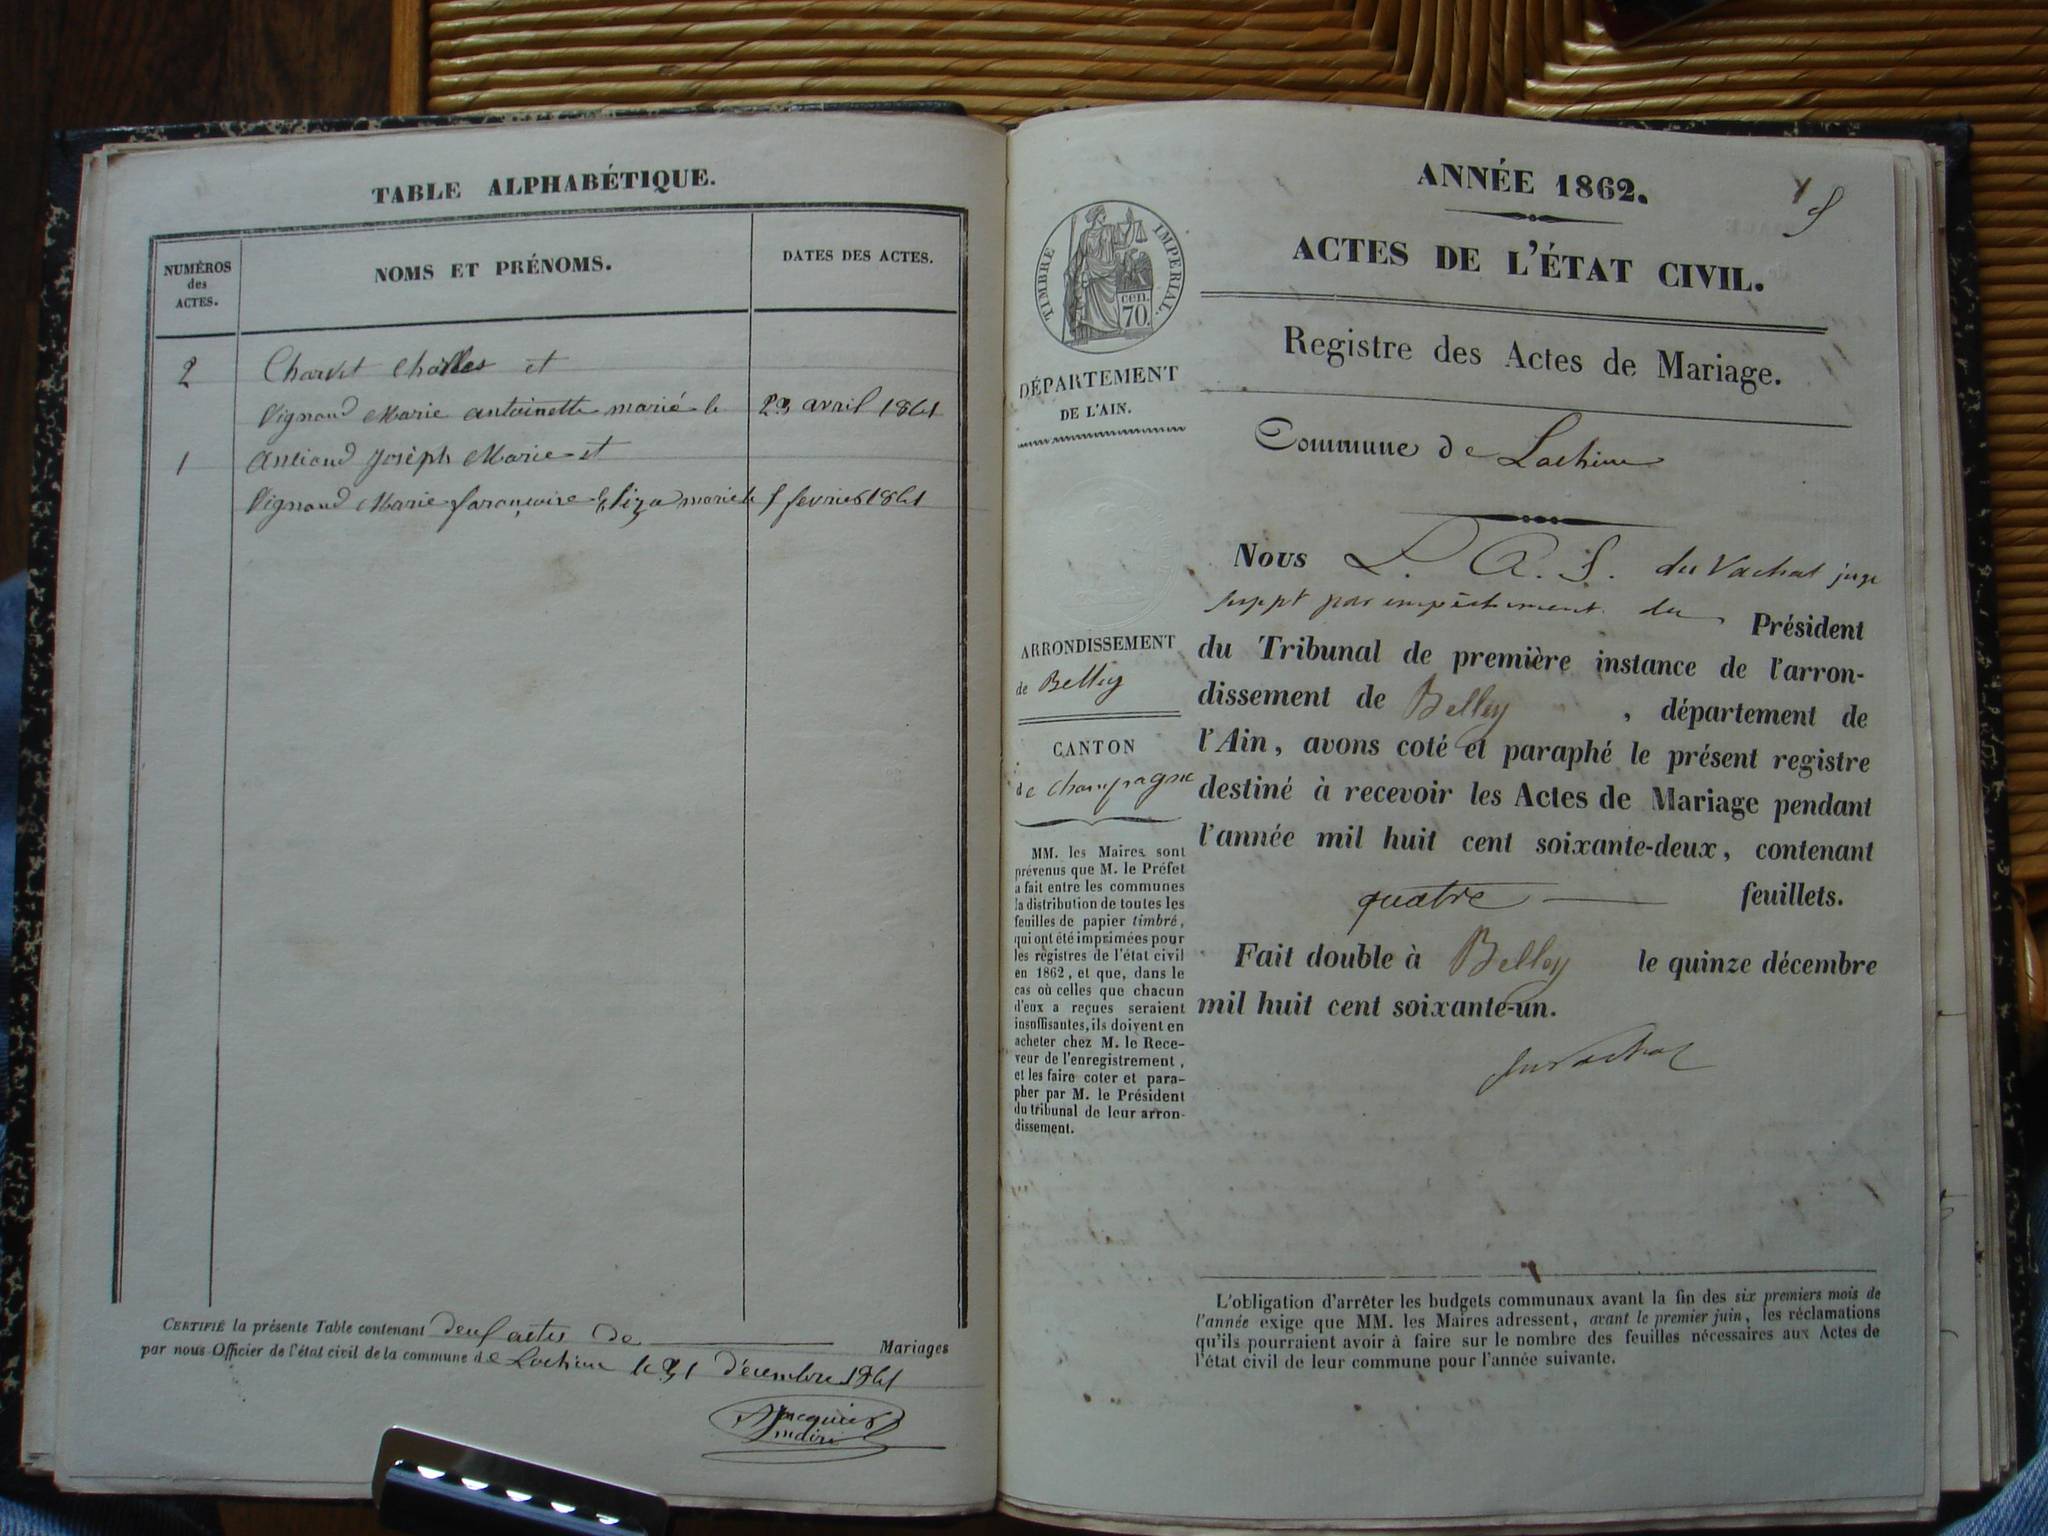 TABLE ALPHABÉTIQUE.
NUMÉROS
des
ACTES.
NOMS ET PRÉNOMS.
DATES DES ACTES.
2 Charvet Charles et
Vignand Marie antoinette marié le 23 avril 1861
1 Antiand Joseph Marie et
Vignand Marie Elisa marié le février 1861
CERTIFIÉ la présente Table contenant deux actes de Mariages
par nous Officier de l'état civil de la commune de Lochieu le 31 Décembre 1861
ANNÉE 1862.
ACTES DE L'ÉTAT CIVIL.
Registre des Actes de Mariage.
TIMBRE IMPERIAL.
cen.
70.
DÉPARTEMENT
DE L'AIN.
Commune de Lochieu
ARRONDISSEMENT
de Belley
CANTON
de Champagne
MM. les Maires sont
prévenus que M. le Préfet
a fait entre les communes
la distribution de toutes les
feuilles de papier timbré,
qui ont été imprimées pour
les registres de l'état civil
en 1862, et que, dans le
cas où celles que chacun
d'eux a reçues seraient
insuffisantes, ils doivent en
acheter chez M. le Rece-
veur de l'enregistrement,
et les faire coter et para-
pher par M. le Président
du tribunal de leur arron-
dissement.
Nous L. A. S. du Vachat juge
suppt par empêchement du Président
du Tribunal de première instance de l'arron-
dissement de Belley , département de
l'Ain, avons coté et paraphé le présent registre
destiné à recevoir les Actes de Mariage pendant
l'année mil huit cent soixante-deux, contenant
quatre feuillets.
Fait double à Belley le quinze décembre
mil huit cent soixante-un.
du Vachat
L'obligation d'arrêter les budgets communaux avant la fin des six premiers mois de
l'année exige que MM. les Maires adressent, avant le premier juin, les réclamations
qu'ils pourraient avoir à faire sur le nombre des feuilles nécessaires aux Actes de
l'état civil de leur commune pour l'année suivante.